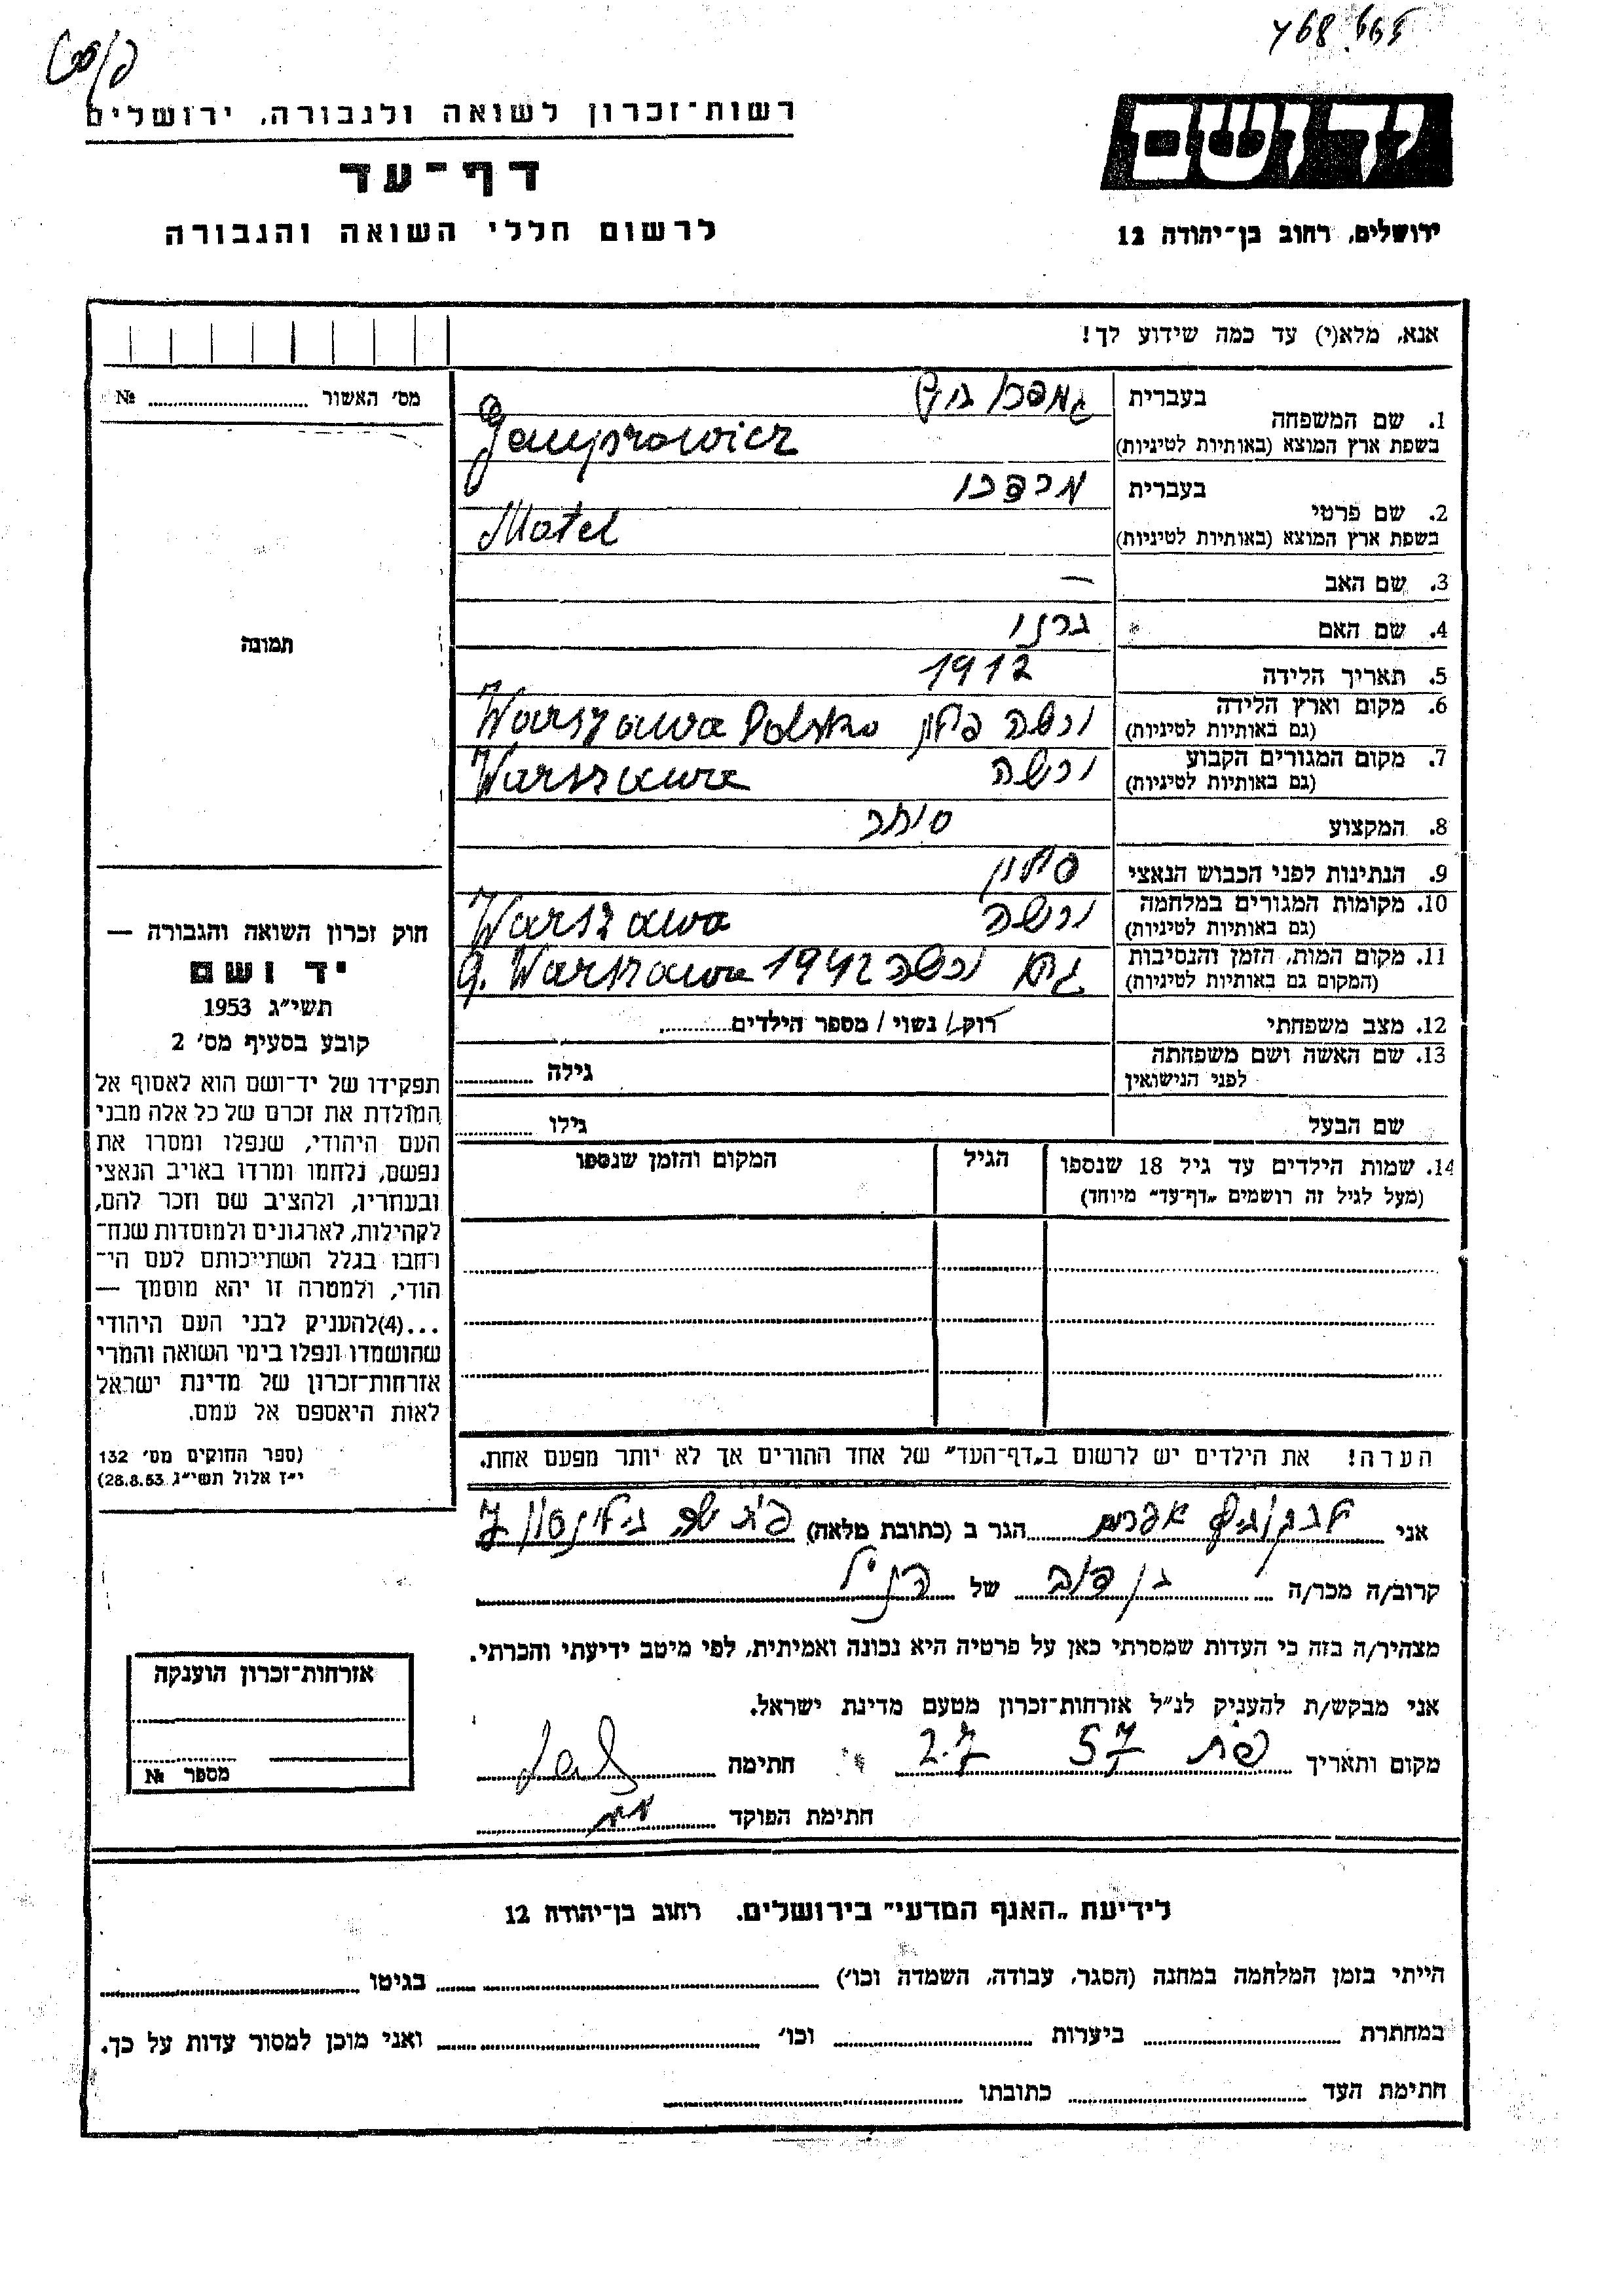 רשות־זכרון לשואה ולגבורה, ירושלים
יד ושם
דף־עד
לרשום חללי השואה והגבורה
ירושלים, רחוב בן־יהודה 12
אנא, מלא(י) עד כמה שידוע לך!
מס׳ האשור № ........
1. שם המשפחה
בעברית
בשפת ארץ המוצא (באותיות לטיניות)
2. שם פרטי
בעברית מרדכי
בשפת ארץ המוצא (באותיות לטיניות) Motel
3. שם האב —
4. שם האם
5. תאריך הלידה 1912
6. מקום וארץ הלידה
(גם באותיות לטיניות) ורשה פולין Warszawa Polska
7. מקום המגורים הקבוע
(גם באותיות לטיניות) ורשה Warszawa
8. המקצוע סוחר
9. הנתינות לפני הכבוש הנאצי פולין
10. מקומות המגורים במלחמה
(גם באותיות לטיניות) ורשה Warszawa
11. מקום המות, הזמן והנסיבות
(המקום גם באותיות לטיניות) גטו ורשה 1942 g. Warszawa
12. מצב משפחתי רוק / נשוי / מספר הילדים ........
13. שם האשה ושם משפחתה
לפני הנישואין גילה ........
שם הבעל גילו ........
14. שמות הילדים עד גיל 18 שנספו
(מעל לגיל זה רושמים „דף־עד״ מיוחד)
הגיל
המקום והזמן שנספו
הערה! את הילדים יש לרשום ב„דף־העד״ של אחד ההורים אך לא יותר מפעם אחת.
תמונה
חוק זכרון השואה והגבורה —
יד ושם
תשי״ג 1953
קובע בסעיף מס׳ 2
תפקידו של יד־ושם הוא לאסוף אל
המולדת את זכרם של כל אלה מבני
העם היהודי, שנפלו ומסרו את
נפשם, נלחמו ומרדו באויב הנאצי
ובעוזריו, ולהציב שם וזכר להם,
לקהילות, לארגונים ולמוסדות שנח־
רחבו בגלל השתייכותם לעם הי־
הודי, ולמטרה זו יהא מוסמך —
...(4) להעניק לבני העם היהודי
שהושמדו ונפלו בימי השואה והמרי
אזרחות־זכרון של מדינת ישראל
לאות היאספם אל עמם.
(ספר החוקים מס׳ 132
י״ז אלול תשי״ג 28.8.53)
אני אברהם הגר ב (כתובת מלאה)
קרוב/ה מכר/ה בן דוד של הנ״ל
מצהיר/ה בזה כי העדות שמסרתי כאן על פרטיה היא נכונה ואמיתית, לפי מיטב ידיעתי והכרתי.
אני מבקש/ת להעניק לנ״ל אזרחות־זכרון מטעם מדינת ישראל.
מקום ותאריך חתימה
חתימת הפוקד
אזרחות־זכרון הוענקה
מספר №
לידיעת „האגף המדעי״ בירושלים. רחוב בן־יהודה 12
הייתי בזמן המלחמה במחנה (הסגר, עבודה, השמדה וכו׳) ........ בגיטו ........
במחתרת ........ ביערות ........ וכו׳ ........ ואני מוכן למסור עדות על כך.
חתימת העד ........ כתובתו ........